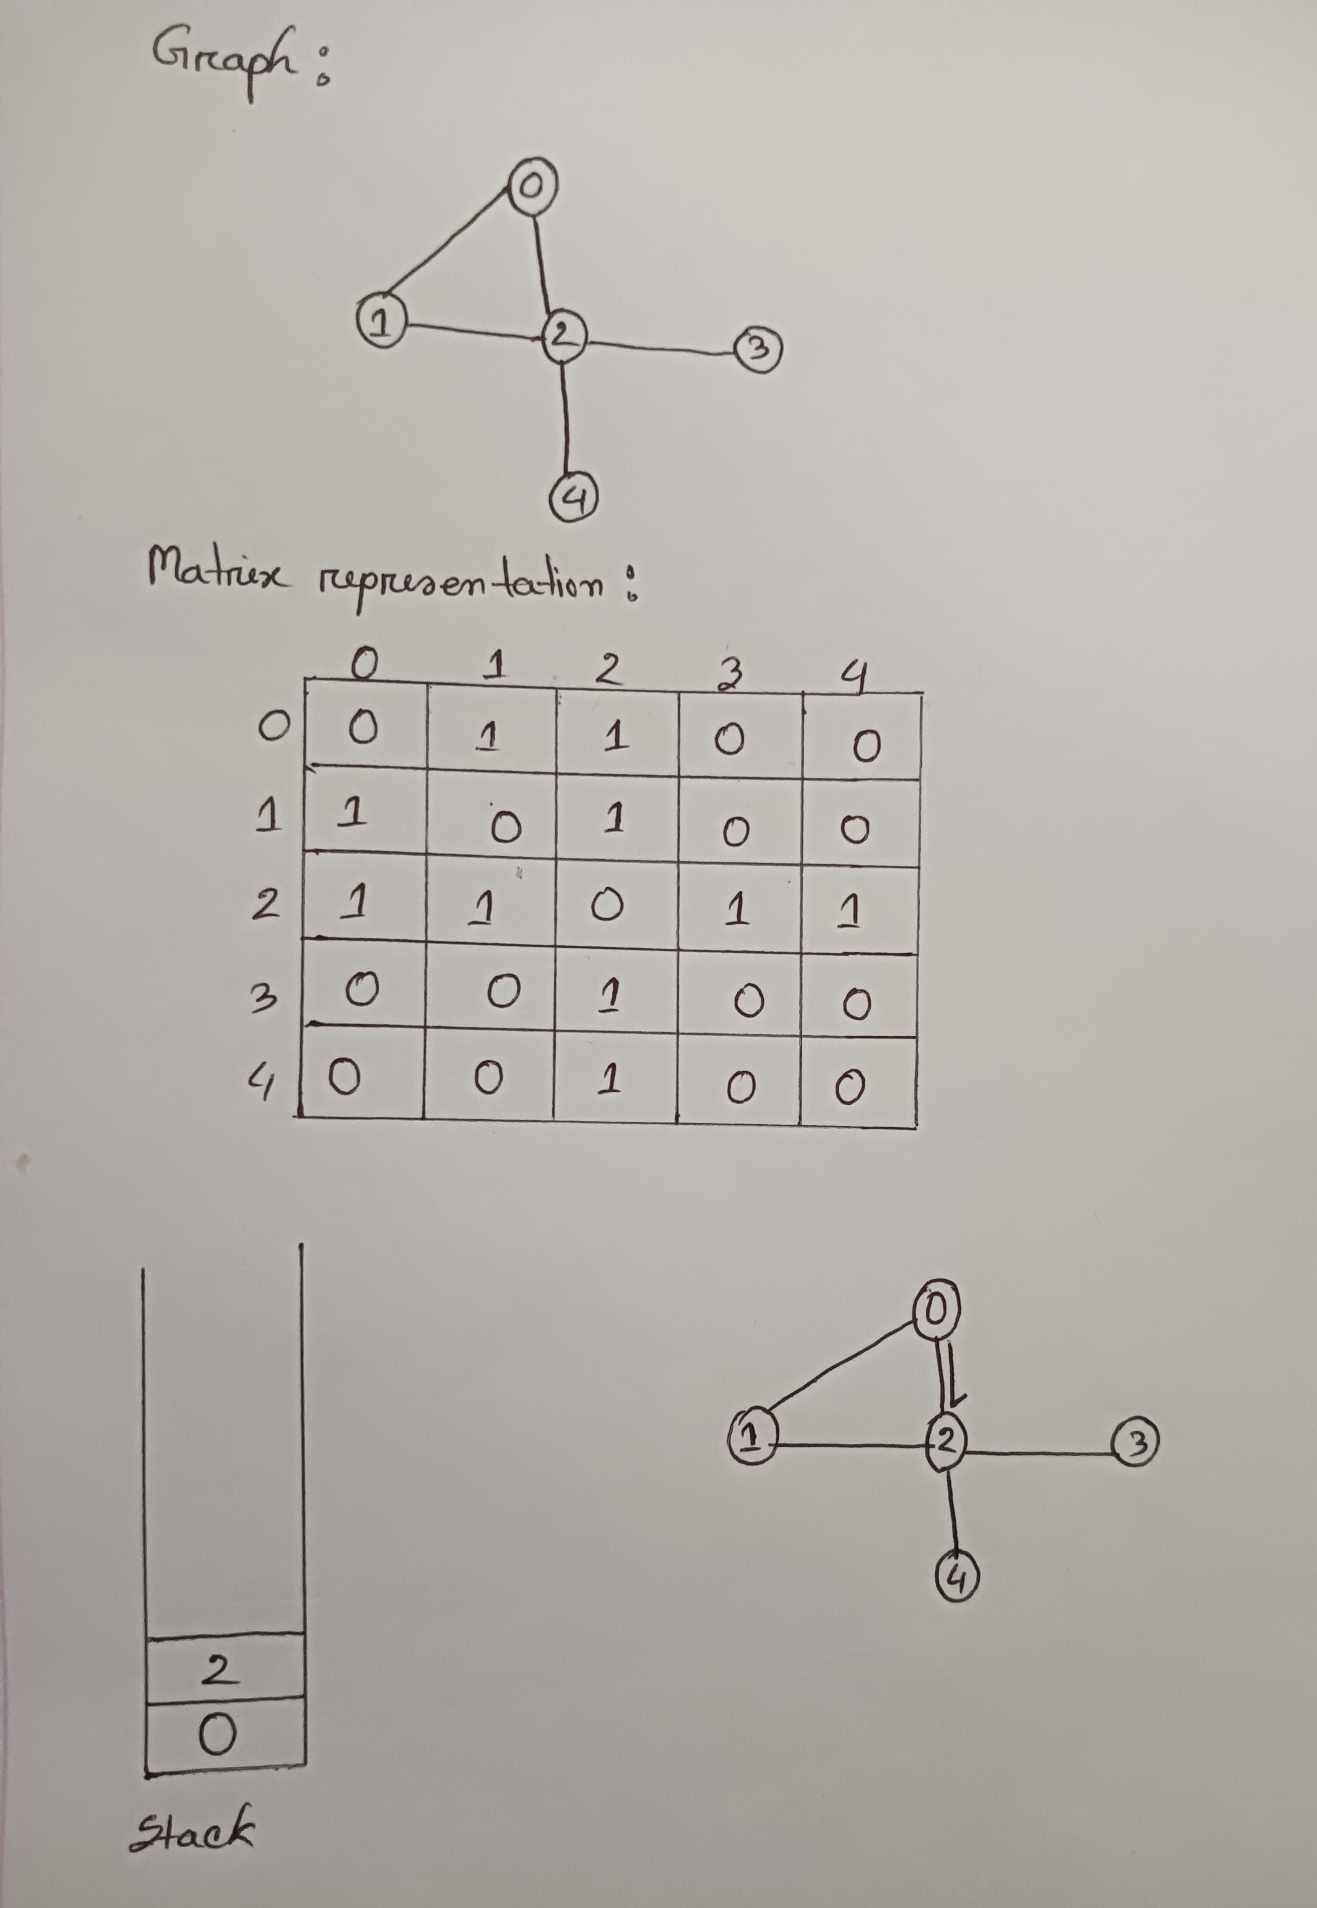 Graph :
0
1 2 3
4
Matrix representation :
0 1 2 3 4
0 0 1 1 0 0
1 1 0 1 0 0
2 1 1 0 1 1
3 0 0 1 0 0
4 0 0 1 0 0
0
1 2 3
4
2
0
Stack